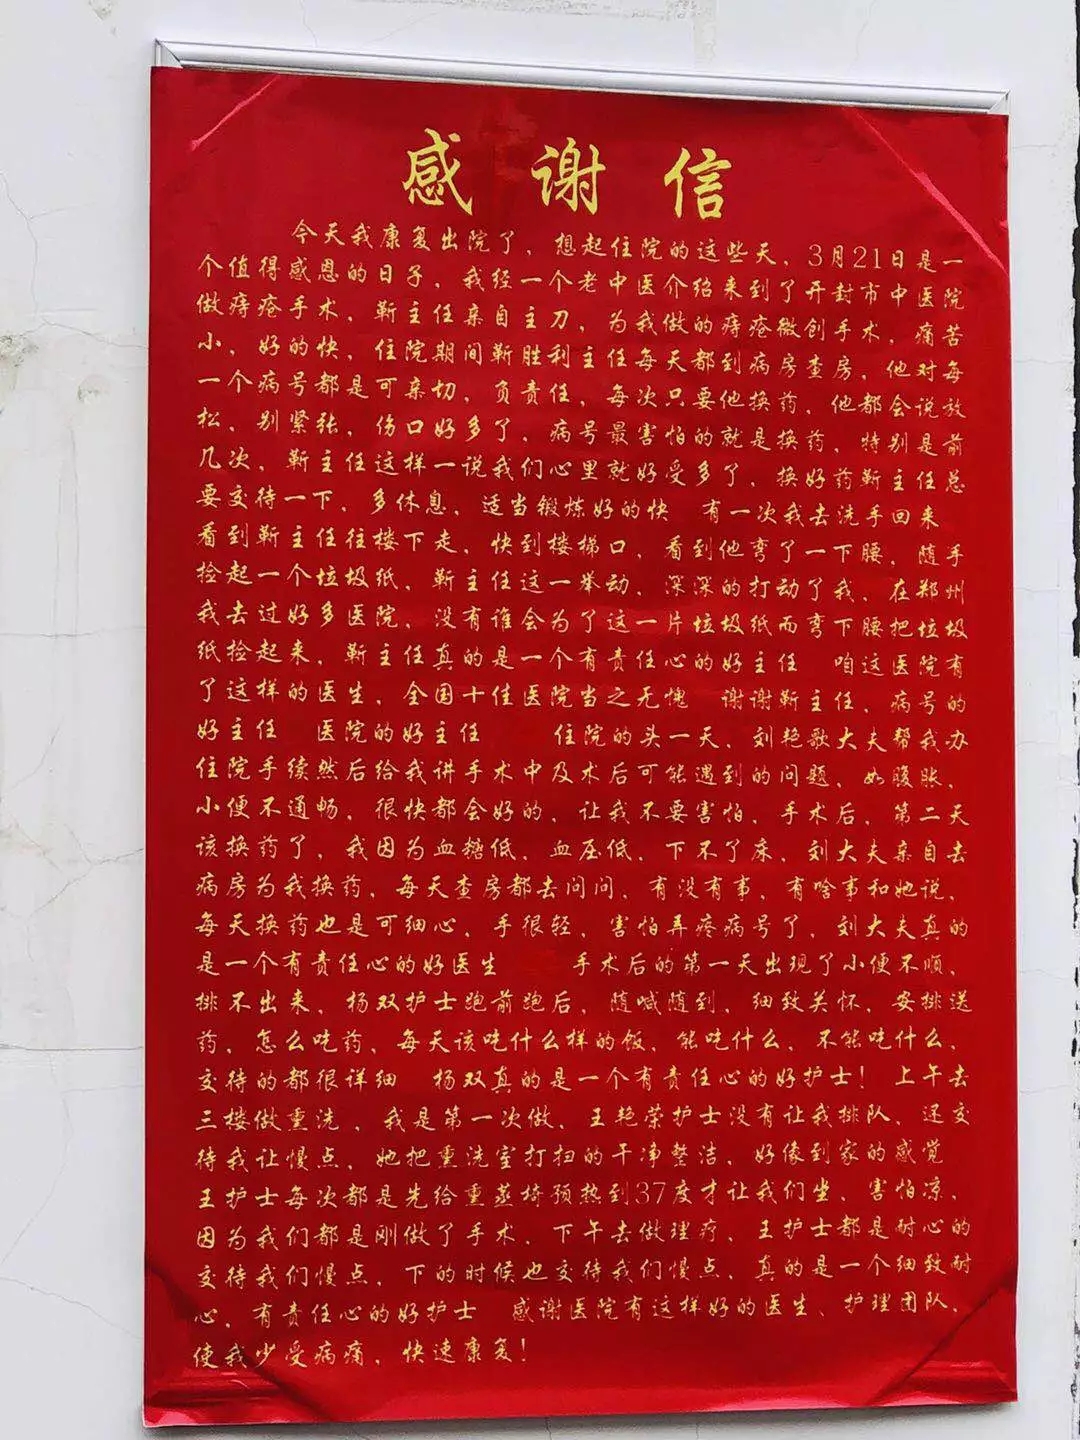 感谢信
今天我康复出院了，想起住院的这些天，3月21日是一
个值得感恩的日子，我经一个老中医介绍来到了开封市中医院
做痔疮手术，靳主任亲自主刀，为我做的痔疮微创手术，痛苦
小，好的快，住院期间靳胜利主任每天都到病房查房，他对每
一个病号都是可亲切，负责任，每次只要他换药，他都会说放
松，别紧张，伤口好多了，病号最害怕的就是换药，特别是前
几次，靳主任这样一说我们心里就好受多了，换好药靳主任总
要交待一下，多休息，适当锻炼好的快 有一次我去洗手回来
看到靳主任往楼下走，快到楼梯口，看到他弯了一下腰，随手
捡起一个垃圾纸，靳主任这一举动，深深的打动了我，在郑州
我去过好多医院，没有谁会为了这一片垃圾纸而弯下腰把垃圾
纸捡起来，靳主任真的是一个有责任心的好主任 咱这医院有
了这样的医生，全国十佳医院当之无愧 谢谢靳主任，病号的
好主任 医院的好主任 住院的头一天，刘艳歌大夫帮我办
住院手续然后给我讲手术中及术后可能遇到的问题，如腹胀，
小便不通畅，很快都会好的，让我不要害怕，手术后，第二天
该换药了，我因为血糖低，血压低，下不了床，刘大夫亲自去
病房为我换药，每天查房都去问问，有没有事，有啥事和她说，
每天换药也是可细心，手很轻，害怕弄疼病号了，刘大夫真的
是一个有责任心的好医生 手术后的第一天出现了小便不顺，
排不出来，杨双护士跑前跑后，随喊随到，细致关怀，安排送
药，怎么吃药，每天该吃什么样的饭，能吃什么，不能吃什么，
交待的都很详细 杨双真的是一个有责任心的好护士！上午去
三楼做熏洗，我是第一次做，王艳荣护士没有让我排队，还交
待我让慢点，她把熏洗室打扫的干净整洁，好像到家的感觉
王护士每次都是先给熏蒸椅预热到37度才让我们坐，害怕凉，
因为我们都是刚做了手术，下午去做理疗，王护士都是耐心的
交待我们慢点，下的时候也交待我们慢点，真的是一个细致耐
心，有责任心的好护士 感谢医院有这样好的医生、护理团队，
使我少受病痛，快速康复！